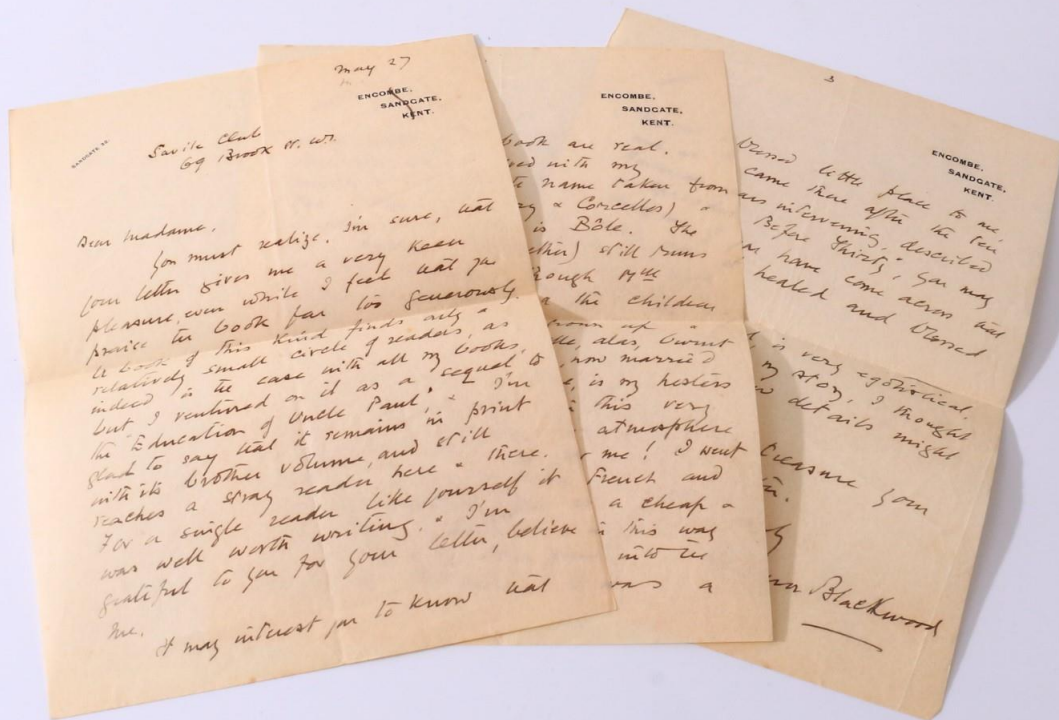 May 27
SANDGATE. 86.
ENCOMBE,
SANDGATE,
KENT.
Savile Club
69 Brook St. W.1.
Dear Madame,
You must realize, I'm sure, that
your letter gives me a very keen
pleasure, even while I feel that you
praise the book far too generously.
A book of this kind finds only a
relatively small circle of readers, as
indeed is the case with all my books,
but I ventured on it as a sequel to
the Education of Uncle Paul, & I'm
glad to say that it remains in print
with its brother volume, and still
reaches a stray reader here & there.
For a single reader like yourself it
was well worth writing. & I'm
grateful to you for your letter, believe
me.
It may interest you to know that
ENCOMBE,
SANDGATE,
KENT.
book are real.
with my
name taken from
& Corcelles) &
is Bôle. The
still runs
through
the children
grown up &
alas, burnt
now married
is my hostess
this very
atmosphere
me! I went
French and
a cheap &
this way
into the
was a
3
ENCOMBE,
SANDGATE,
KENT.
blessed little place to me.
came there after the ten
years intervening, described
Before Thirty", you may
have come across that
healed and blessed
is very egotistical.
my story, I thought
details might
treasure your
Blackwood